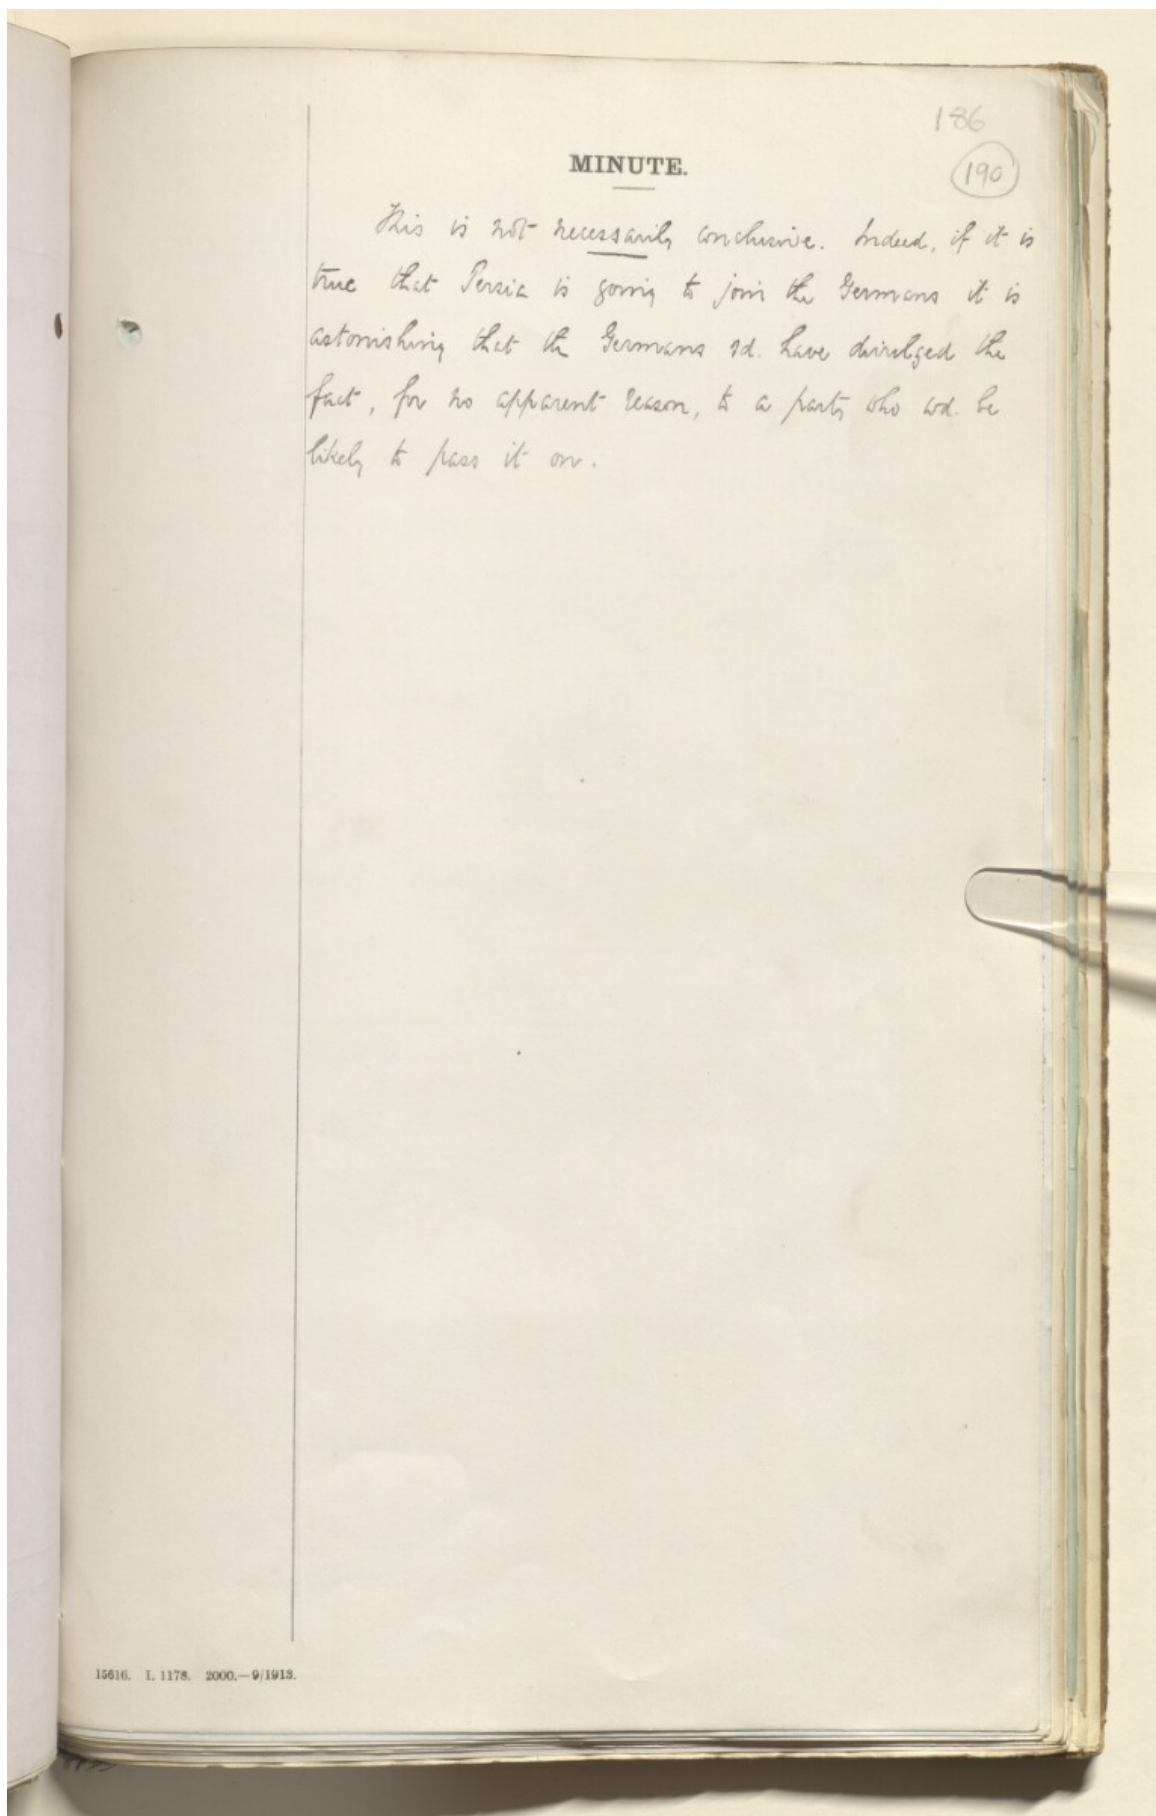 186
190
MINUTE.
This is not necessarily conclusive. Indeed, if it is
true that Persia is going to join the Germans it is
astonishing that the Germans sd. have divulged the
fact, for no apparent reason, to a party who wd. be
likely to pass it on.
15616. I. 1178. 2000.—9/1913.